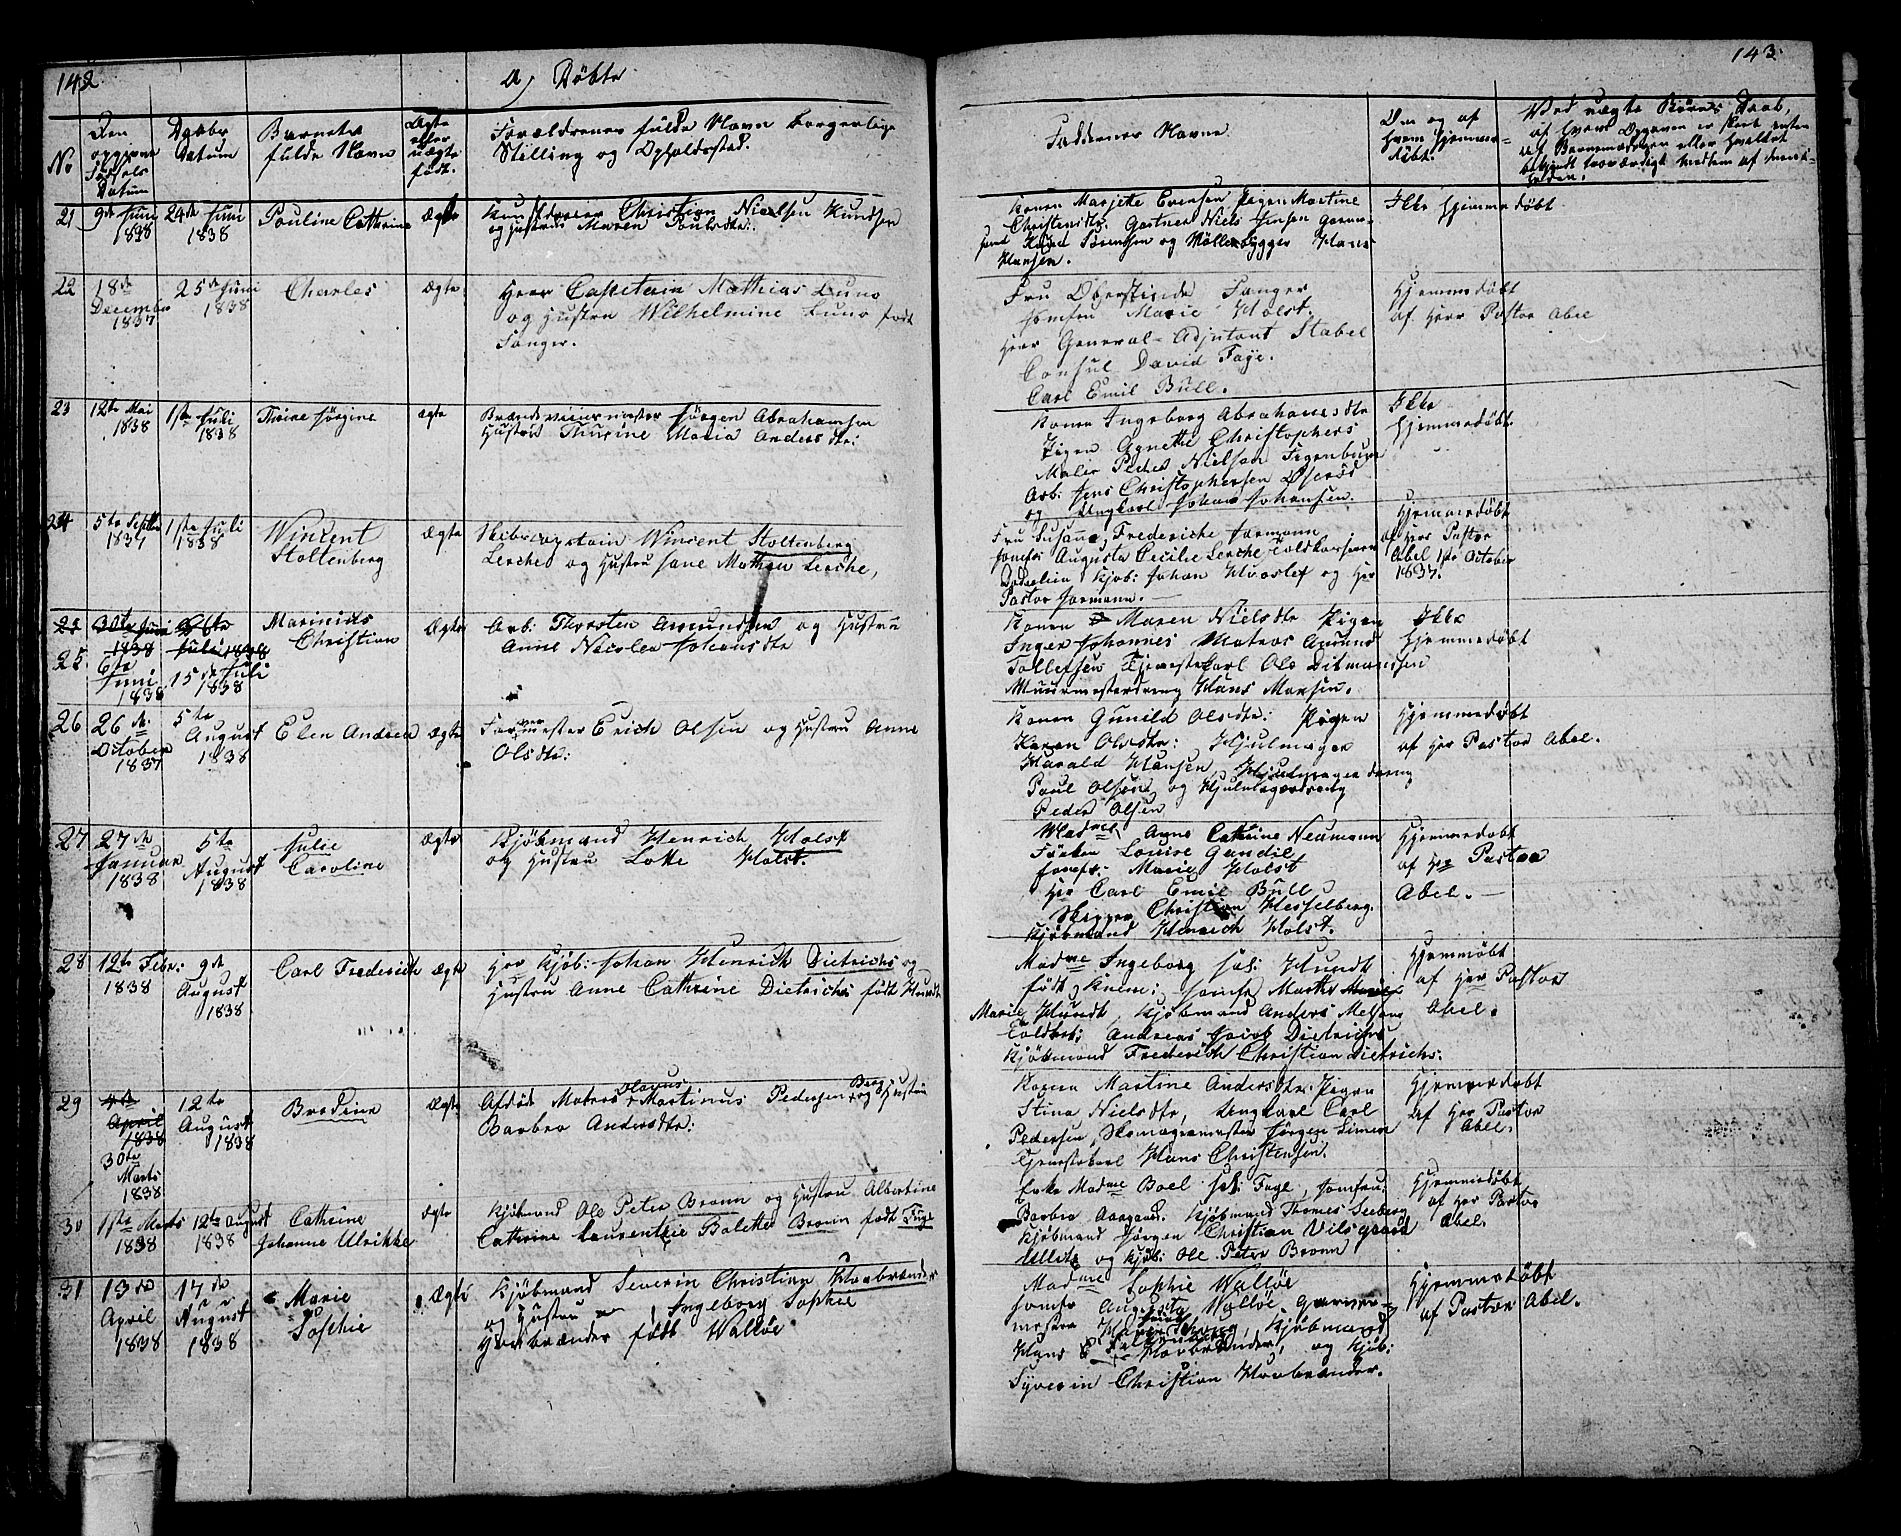 142
a, Döbte
No
Den opgivne Fødsels Datum
Daabs Datum
Barnets fulde Navn
Ægte eller uægte født.
Forældrenes fulde Navn borgerlige Stilling og Opholdssted.
21
9de Juni 1838
24de Juni 1838
Pauline Cathrine
Ægte
Christian Nielsen Knudsen
og Hustru Maren Poulsdtr:
22
18de December 1837
25de Juni 1838
Charles
Ægte
Herr Capitain Mathias Luno
og Hustru Wilhelmine Luno født
Sanger.
23
12te Mai 1838
1ste Juli 1838
Thrine Jörgine
ægte
Jörgen Abrahamsen
Hustru Thurine Maria Andersdtr:
24
5te Septbr 1837
1ste Juli 1838
Wincent Stoltenberg
Ægte
Skibscapitain Wincent Stoltenberg
Lerche og Hustru Jane Mathea Lerche,
25.
6te Juni 1838
15de Juli 1838
Marinius Christian
Ægte
Arb: Thorsten Amundsen og Hustru
Anne Nicolea Johansdtr
26
26de October 1837
5te August 1838
Elen Andrea
Ægte
Farvermester Erich Olsen og Hustru Anne
Olsdtr:
27
27de Januar 1838
5te August 1838
Julie Caroline
Ægte
Kjöbmand Henrich Holst
og Hustru Lotte Holst.
28
12te Febr: 1838
9de August 1838
Carl Frederich
Ægte
Herr Kjöb: Johan Henrich Dietrichs og
Hustru Anne Cathrine Dietrichs født Hundt
29
4de April 1838
30te Marts 1838
12te August 1838
Bredine
Ægte
Afdøde Matros Olavus Martinus Pedersen Berg og Hustru
Barbro Andersdtr:
30
1ste Marts 1838
12te August 1838
Cathrine Johanne Ulrikke
Ægte
Kjöbmand Ole Peter Bronn og Hustru Albertine
Cathrine Laurentzie Balette Bronn født Faye
31
13de April 1838
17de August 1838
Marie Sophie
Ægte
Kjöbmand Severin Christian Horbrænder
og Hustru Ingeborg Sophie
Horbrænder født Walløe
143.
Faddernes Navne.
Om og af hvem hjemmedøbt.
Ved uægte Börns Daab,
af hvem Opgaven er skeet enten
af Barnemoderen eller hvilket
Konen Marjette Evensen Pigen Martine
Christensdtr. Gartner Niels Jensen
Sörensen og Møllebygger Hans
Hansen.
Ikke hjemmedöbt
Fru Oberstinde Sanger
Jomfru Marie Holst.
Herr General-Adjutant Stabel
Consul David Faye.
Carl Emil Bull.
Hjemmedöbt
af Herr Pastor Abel
Konen Ingeborg Abrahamsdtr
Pigen Agnethe Christophers
Maler Peder Nielsen Tegenbum
Arb: Jens Christophersen Øserød
og Ungkarl Johan Johansen.
Ikke
hjemmedöbt.
Fru Susanne Frederiche Jormann
Jomfru Augusta Cecilie Lerche Toldkasserer
Kjøb: Johan Hvoslef og Hr
Pastor Jormann.
Hjemmedöbt
af Herr Pastor
Abel 1ste October
1837.
Konen Maren Nielsdtr Pigen
Inger Johannes Matros Amund
Tollefsen Tjenestekarl Ole Ditmansen
Muurmesterdreng Hans Monsen.
Ikke
Hjemmedöbt
Konen Gunild Olsdtr: Pigen
Karen Olsdtr: Hjulmager
Harald Hansen, Hjulmagerdreng
Paul Olsen og Hjulmagerdreng
Peder Olsen
Hjemmedöbt
af Herr Pastor Abel.
Madme Anne Cathrine Neumann
Fröken Louise Gundil
Jomfr: Marie Holst
Hr Carl Emil Bull
Skipper Christian Hesselberg.
Kjöbmand Henrich Holst.
Hjemmedöbt
af Hr Pastor
Abel.
Madme Ingeborg sal: Hundt
født Knem: Jomfr Marthe
Marie Hundt, Kjöbmand Anders Melsom
Toldbet: Andreas Jacob Dietrichs
Kjöbmand Frederich Christian Dietrichs.
Hjemmöbt
af Hr Pastor
Abel.
Konen Martine Andersdtr. Pigen
Stina Nielsdtr, Ungkarl Carl
Pedersen, Skomagermester Jørgen Simen
Tjenestekarl Hans Christensen.
Hjemmedöbt
af Hr Pastor
Abel.
Enke Madme Boel sal: Faye, Jomfru:
Barbra Aargaard. Kjöbmand Thomas Seeberg
Kjöbmand Jørgen Christian Vilsgaard
Ullitz og Kjöb: Ole Peter Bronn
Hjemmedöbt
af Hr Pastor
Abel.
Madme Sophie Walløe
Jomfr Augusta Walløe, Garver-
mester Kjöbmand
Hans Horbrænder, og Kjöb:
Syverin Christian Horbrænder.
Hjemmedöbt
af Pastor Abel.